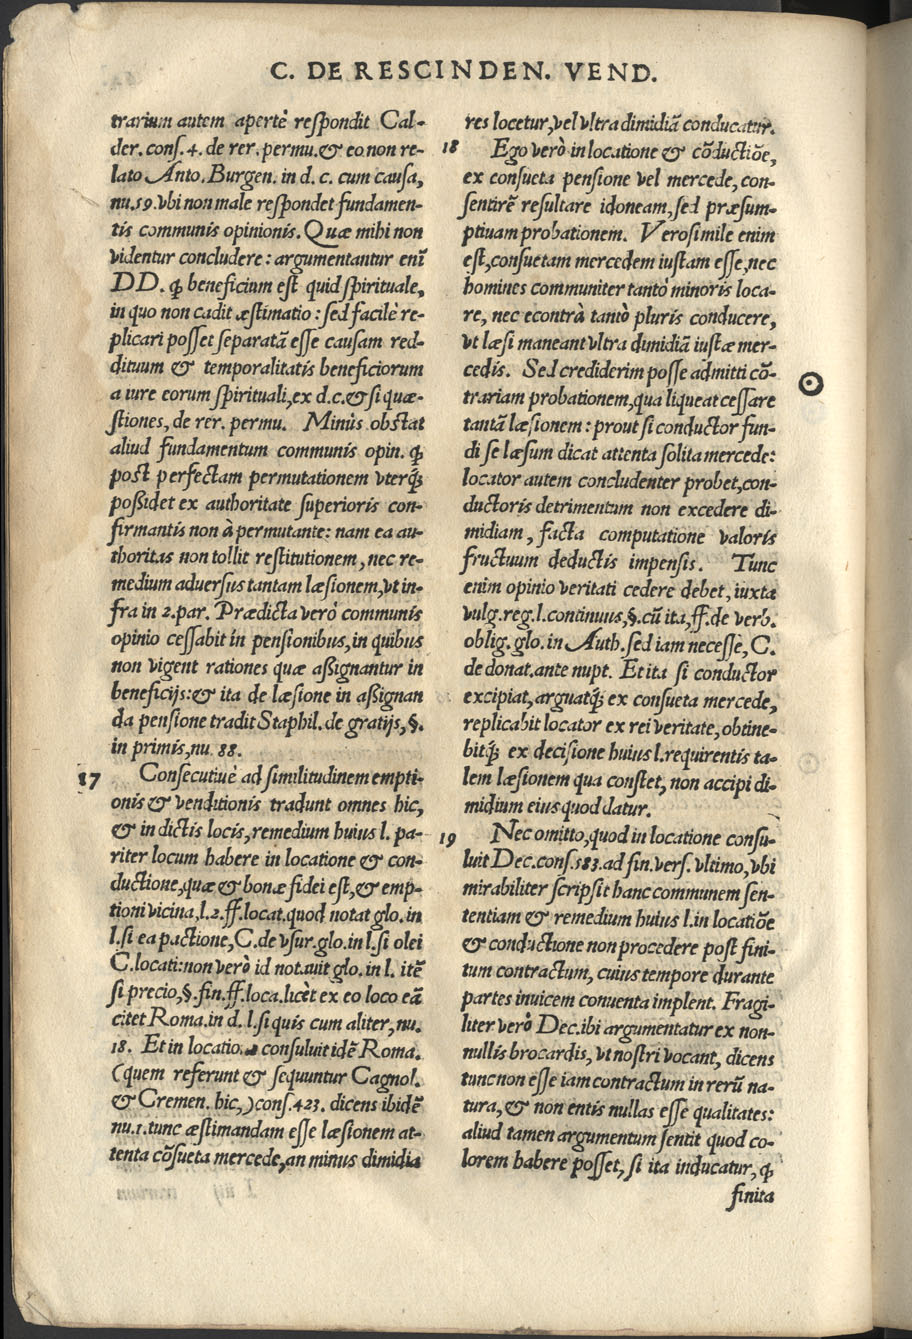 C. DE RESCINDEN. VEND.
trarium autem apertè respondit Cal-
der. cons. 4. de rer. permu. & eo non re-
lato Anto. Burgen. in d. c. cum causa,
nu. 59. vbi non male respondet fundamen-
tis communis opinionis. Quæ mihi non
videntur concludere: argumentantur enĩ
DD. ꝙ beneficium est quid spirituale,
in quo non cadit æstimatio: sed facilè re-
plicari posset separatã esse causam red-
dituum & temporalitatis beneficiorum
a iure eorum spirituali, ex d. c. & si quæ-
stiones, de rer. permu. Minùs obstat
aliud fundamentum communis opin. ꝙ
post perfectam permutationem vterq́;
possidet ex authoritate superioris con-
firmantis non à permutante: nam ea au-
thoritas non tollit restitutionem, nec re-
medium aduersus tantam læsionem, vt in-
fra in 2. par. Prædicta verò communis
opinio cessabit in pensionibus, in quibus
non vigent rationes quæ assignantur in
beneficijs: & ita de læsione in assignan
da pensione tradit Staphil. de gratijs, §.
in primis, nu. 88.
17 Consecutiuè ad similitudinem empti-
onis & venditionis tradunt omnes hic,
& in dictis locis, remedium huius l. pa-
riter locum habere in locatione & con-
ductione, quæ & bonæ fidei est, & emp-
tioni vicina, l. 2. ff. locat. quod notat glo. in
l. si ea pactione, C. de vsur. glo. in l. si olei
C. locati: non verò id notauit glo. in l. itẽ
si precio, §. fin. ff. loca. licèt ex eo loco eã
citet Roma. in d. l. si quis cum aliter, nu.
18. Et in locatio. consuluit idẽ Roma.
(quem referunt & sequuntur Cagnol.
& Cremen. hic,) cons. 423. dicens ibidẽ
nu. 1. tunc æstimandam esse læsionem at-
tenta cõsueta mercede, an minus dimidia
res locetur, vel vltra dimidiã conducatur.
18 Ego verò in locatione & cõductiõe,
ex consueta pensione vel mercede, con-
sentirẽ resultare idoneam, sed præsum-
ptiuam probationem. Verosimile enim
est, consuetam mercedem iustam esse, nec
homines communiter tantò minoris loca-
re, nec econtrà tantò pluris conducere,
vt læsi maneant vltra dimidiã iustæ mer-
cedis. Sed crediderim posse admitti cõ-
trariam probationem, qua liqueat cessare
tantã læsionem: prout si conductor fun-
di se læsum dicat attenta solita mercede:
locator autem concludenter probet, con-
ductoris detrimentum non excedere di-
midiam, facta computatione valoris
fructuum deductis impensis. Tunc
enim opinio veritati cedere debet, iuxta
vulg. reg. l. continuus, §. cũ ita, ff. de verb.
oblig. glo. in Auth. sed iam necessè, C.
de donat. ante nupt. Et ita si conductor
excipiat, arguatq́; ex consueta mercede,
replicabit locator ex rei veritate, obtine-
bitq́; ex decisione huius l. requirentis ta-
lem læsionem qua constet, non accipi di-
midium eius quod datur.
19 Nec omitto, quod in locatione consu-
luit Dec. cons. 583. ad fin. vers. vltimo, vbi
mirabiliter scripsit hanc communem sen-
tentiam & remedium huius l. in locatiõe
& conductione non procedere post fini-
tum contractum, cuius tempore durante
partes inuicem conuenta implent. Fragi-
liter verò Dec. ibi argumentatur ex non-
nullis brocardis, vt nostri vocant, dicens
tunc non esse iam contractum in rerũ na-
tura, & non entis nullas esse qualitates:
aliud tamen argumentum sentit quod co-
lorem habere posset, si ita inducatur, ꝙ
finita